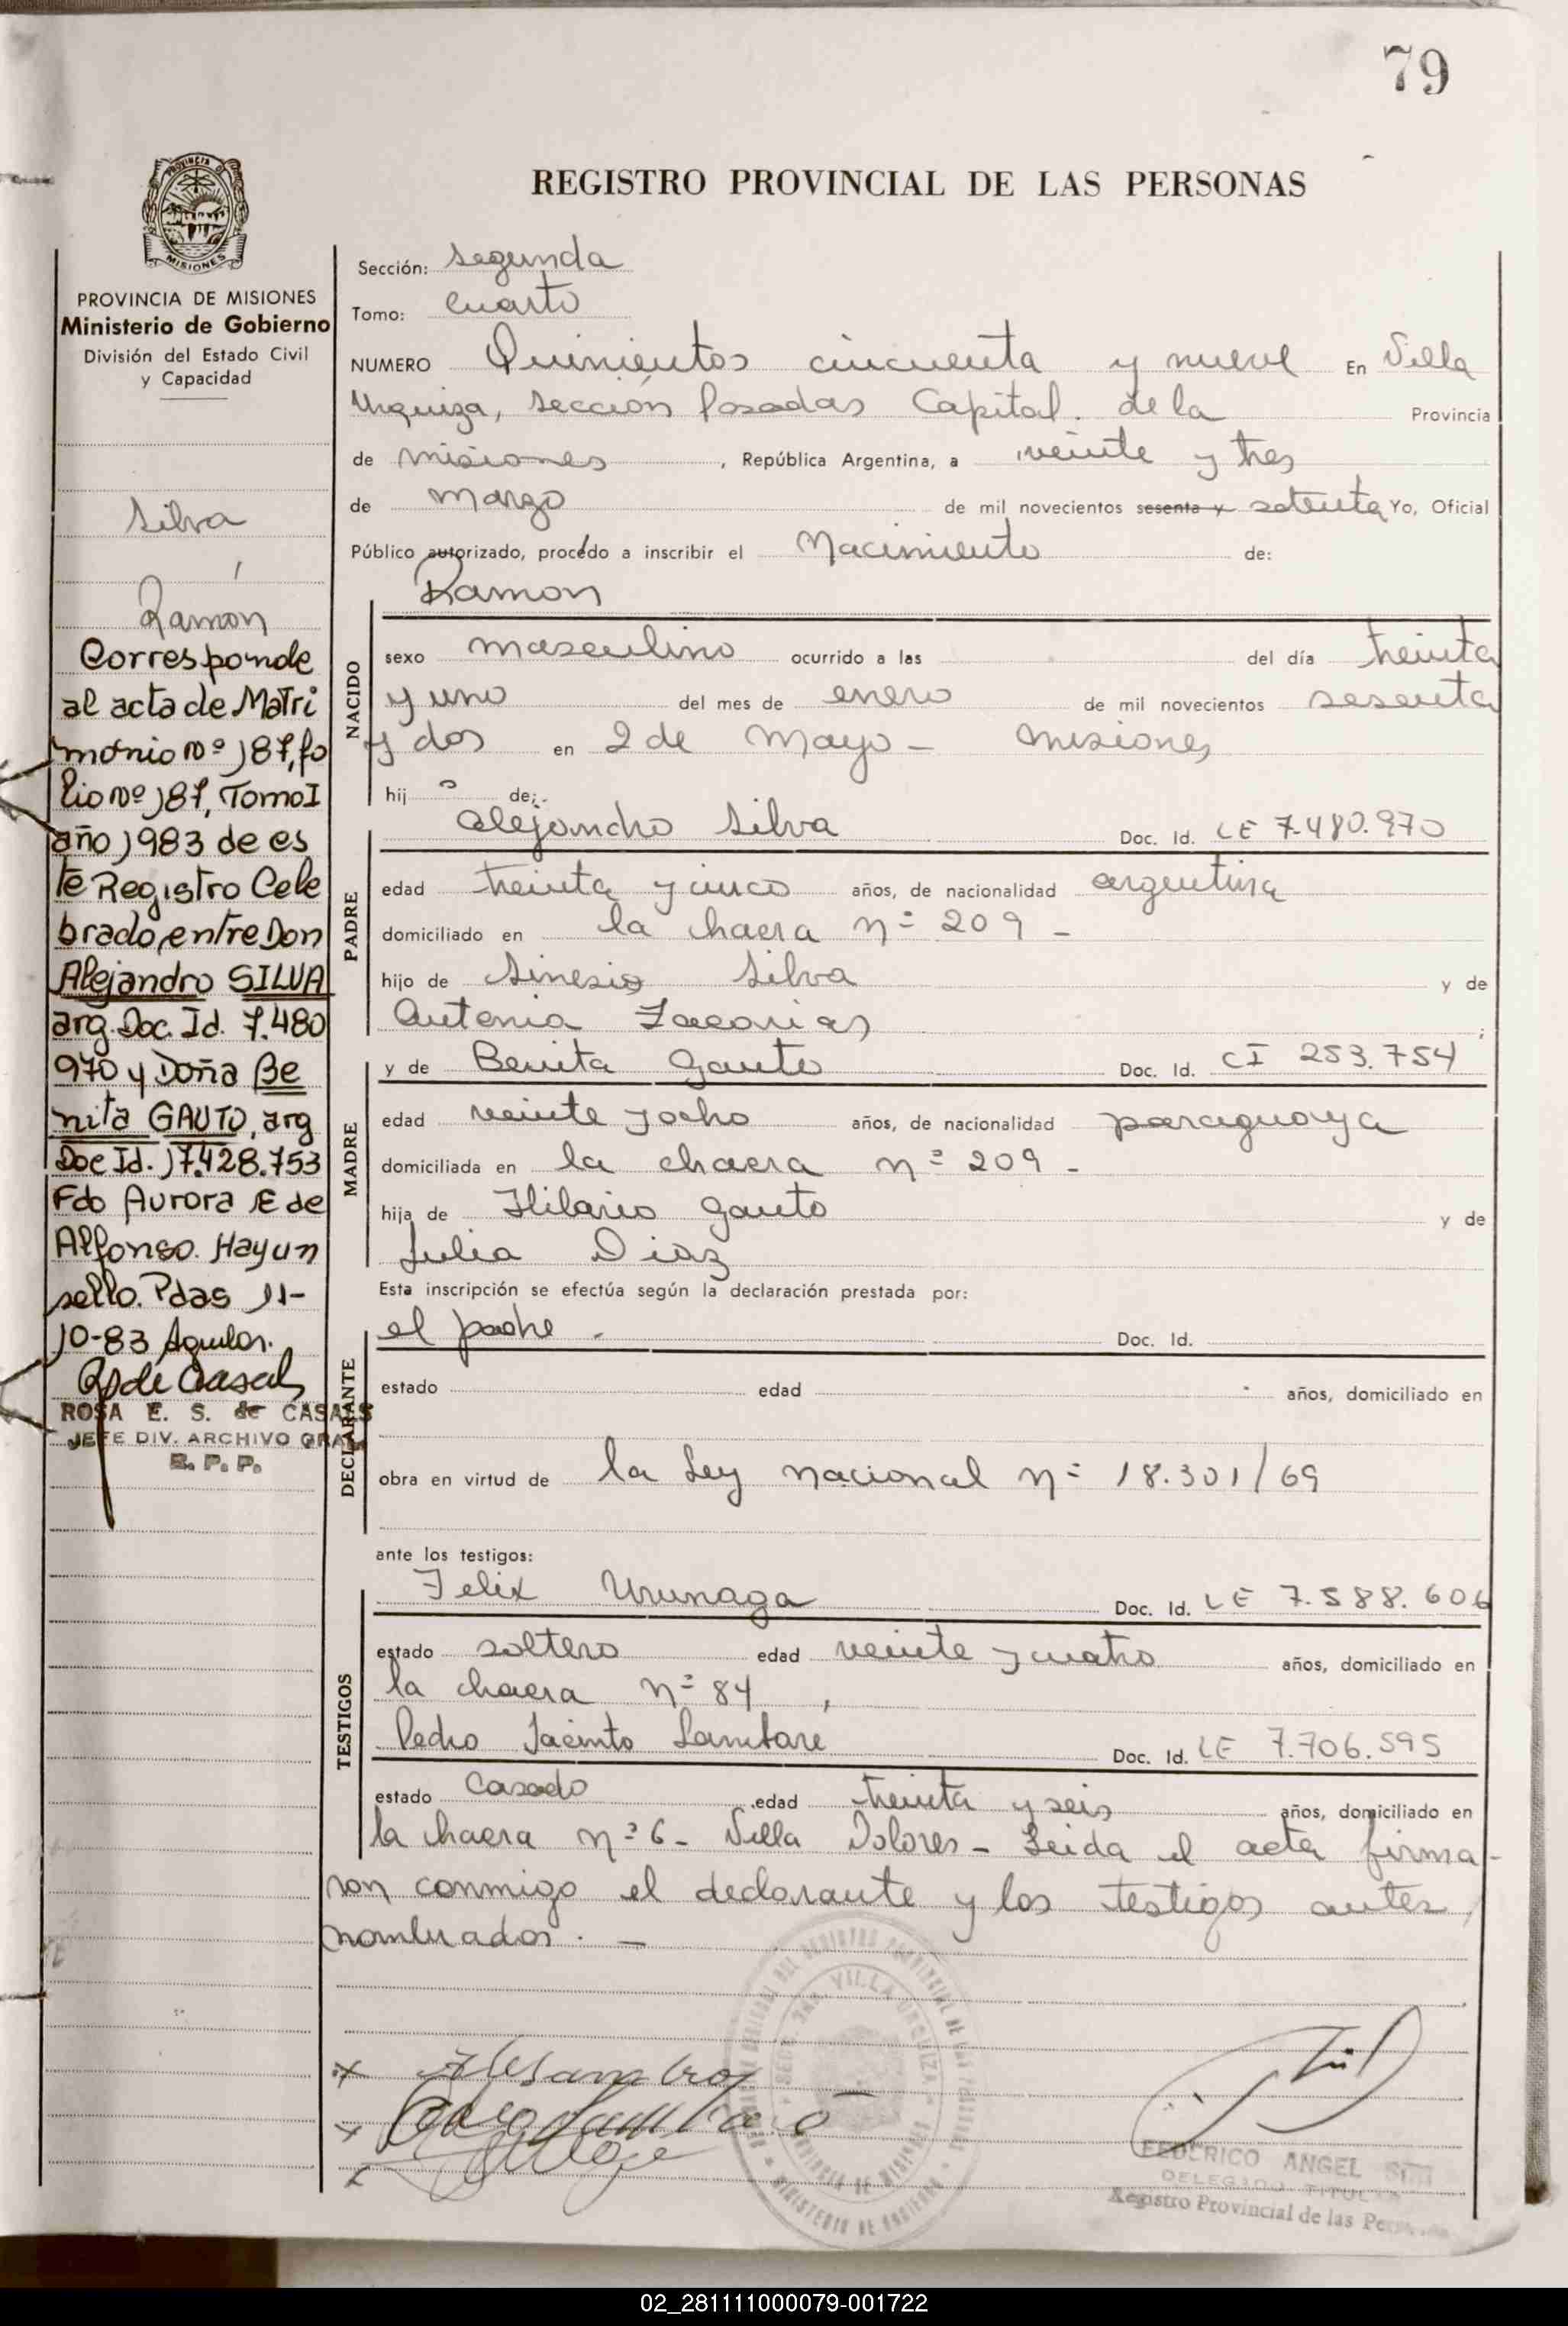 79
PROVINCIA D
MISIONES
REGISTRO PROVINCIAL DE LAS PERSONAS
PROVINCIA DE MISIONES
Ministerio de Gobierno
División del Estado Civil
y Capacidad
Silva
Ramón
Corresponde
al acta de Matri
monio Nº 187, fo
lio Nº 187, Tomo I
año 1983 de es
te Registro Cele
brado, entre Don
Alejandro SILVA
arg. Doc. Id. 7.480
970 y Doña Be
nita GAUTO, arg
Doc Id. 17.428.753
Fdo Aurora E de
Alfonso. Hay un
sello. Pdas 11-
10-83 Aguilar.
R de Casals
ROSA E. S. de CASALS
JEFE DIV. ARCHIVO GRAL
R. P. P.
Sección: segunda
Tomo: cuarto
NUMERO Quinientos cincuenta y nueve En Villa
Urquiza, sección Posadas Capital. de la Provincia
de misiones, República Argentina, a veinte y tres
de marzo de mil novecientos sesenta y setenta Yo, Oficial
Público autorizado, procedo a inscribir el Nacimiento de:
Ramon
NACIDO
sexo masculino ocurrido a las del día treinta
y uno del mes de enero de mil novecientos sesenta
y dos en 2 de Mayo - misiones
hij o de:
Alejandro Silva Doc. Id. LE 7.480.970
PADRE
edad treinta y cinco años, de nacionalidad argentina
domiciliado en la chacra nº 209 -
hijo de Sinesio Silva y de
Antonia Zacarias ;
y de Benita Gauto Doc. Id. CI 253.754
MADRE
edad veinte y ocho años, de nacionalidad paraguaya
domiciliada en la chacra nº 209 -
hija de Hilario Gauto y de
Julia Diaz
Esta inscripción se efectúa según la declaración prestada por:
el padre . Doc. Id.
DECLARANTE
estado edad años, domiciliado en
obra en virtud de la Ley nacional nº 18.301/69
ante los testigos:
Felix Urunaga Doc. Id. LE 7.588.606
TESTIGOS
estado soltero edad veinte y cuatro años, domiciliado en
la chacra nº 84,
Pedro Jacinto Lambare Doc. Id. LE 7.706.595
estado casado edad treinta y seis años, domiciliado en
la chacra nº 6 - Villa Dolores - Leida el acta firma-
ron conmigo el declarante y los testigos antes
nombrados. -
VILLA URQUIZA
FEDERICO ANGEL
DELEGADO TITULAR
Registro Provincial de las Personas
02_281111000079-001722